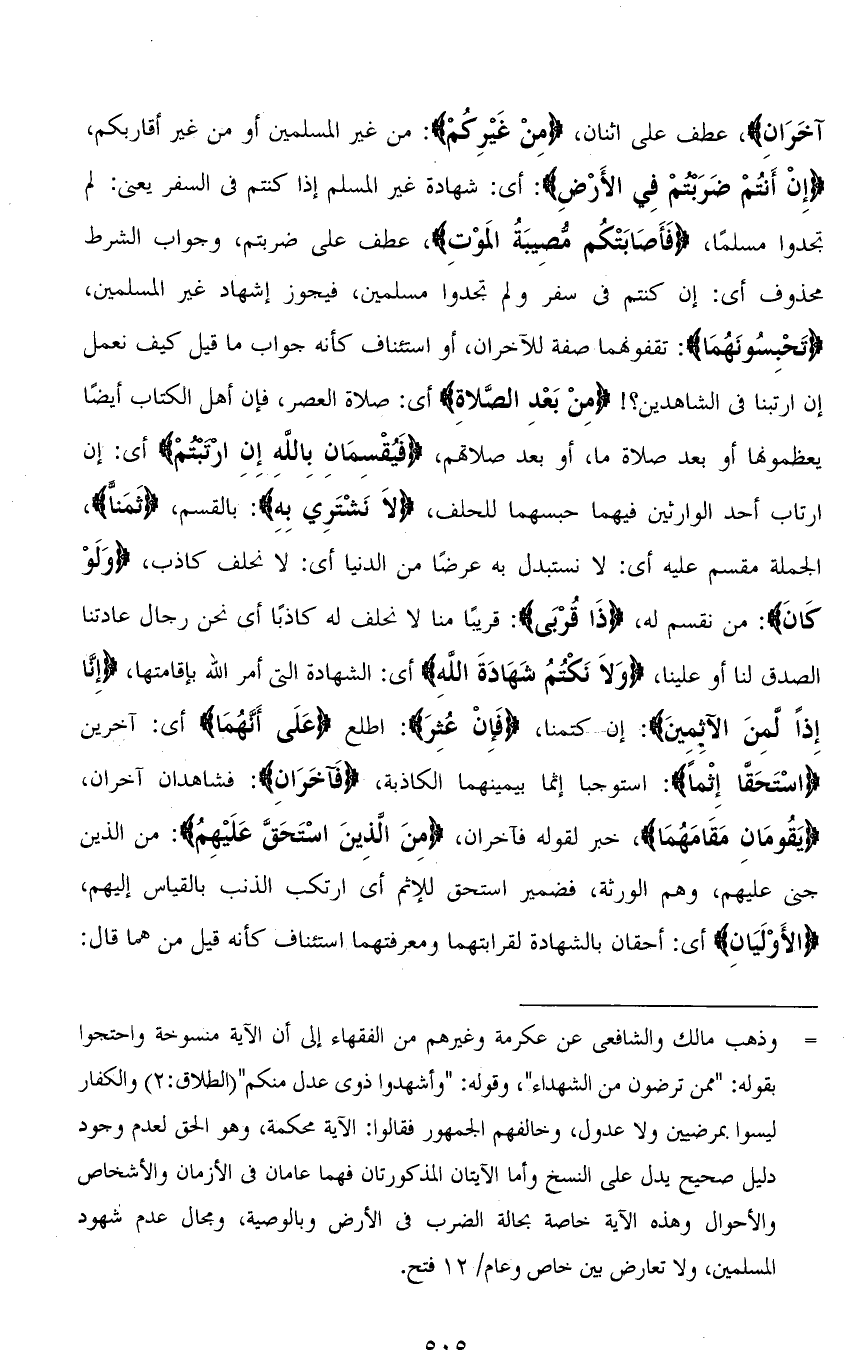 آخَرَانِ﴾، عطف على اثنان، ﴿مِنْ غَيْرِكُمْ﴾: من غير المسلمين أو من غير أقاربكم،
﴿إِنْ أَنتُمْ ضَرَبْتُمْ فِي الأَرْضِ﴾: أى: شهادة غير المسلم إذا كنتم فى السفر يعنى: لم
تجدوا مسلمًا، ﴿فَأَصَابَتْكُم مُّصِيبَةُ المَوْتِ﴾، عطف على ضربتم، وجواب الشرط
محذوف أى: إن كنتم فى سفر ولم تجدوا مسلمين، فيجوز إشهاد غير المسلمين،
﴿تَحْبِسُونَهُمَا﴾: تقفونهما صفة للآخران، أو استئناف كأنه جواب ما قيل كيف نعمل
إن ارتبنا فى الشاهدين؟! ﴿مِنْ بَعْدِ الصَّلاةِ﴾ أى: صلاة العصر، فإن أهل الكتاب أيضًا
يعظمونها أو بعد صلاة ما، أو بعد صلاتهم، ﴿فَيُقْسِمَانِ بِاللَّهِ إِنِ ارْتَبْتُمْ﴾ أى: إن
ارتاب أحد الوارثين فيهما حبسهما للحلف، ﴿لاَ نَشْتَرِي بِهِ﴾: بالقسم، ﴿ثَمَناً﴾،
الجملة مقسم عليه أى: لا نستبدل به عرضًا من الدنيا أى: لا نحلف كاذب، ﴿وَلَوْ
كَانَ﴾: من نقسم له، ﴿ذَا قُرْبَى﴾: قريبًا منا لا نحلف له كاذبًا أى نحن رجال عادتنا
الصدق لنا أو علينا، ﴿وَلاَ نَكْتُمُ شَهَادَةَ اللَّهِ﴾ أى: الشهادة التى أمر الله بإقامتها، ﴿إِنَّا
إِذاً لَّمِنَ الآثِمِينَ﴾: إن كتمنا، ﴿فَإِنْ عُثِرَ﴾: اطلع ﴿عَلَى أَنَّهُمَا﴾ أى: آخرين
﴿اسْتَحَقَّا إِثْماً﴾: استوجبا إثما بيمينهما الكاذبة، ﴿فَآخَرَانِ﴾: فشاهدان آخران،
﴿يَقُومَانِ مَقَامَهُمَا﴾، خبر لقوله فآخران، ﴿مِنَ الَّذِينَ اسْتَحَقَّ عَلَيْهِمُ﴾: من الذين
جنى عليهم، وهم الورثة، فضمير استحق للإثم أى ارتكب الذنب بالقياس إليهم،
﴿الأَوْلَيَانِ﴾ أى: أحقان بالشهادة لقرابتهما ومعرفتهما استئناف كأنه قيل من هما قال:
= وذهب مالك والشافعى عن عكرمة وغيرهم من الفقهاء إلى أن الآية منسوخة واحتجوا
بقوله: "ممن ترضون من الشهداء"، وقوله: "وأشهدوا ذوى عدل منكم"(الطلاق:٢) والكفار
ليسوا بمرضيين ولا عدول، وخالفهم الجمهور فقالوا: الآية محكمة، وهو الحق لعدم وجود
دليل صحيح يدل على النسخ وأما الآيتان المذكورتان فهما عامان فى الأزمان والأشخاص
والأحوال وهذه الآية خاصة بحالة الضرب فى الأرض وبالوصية، ومجال عدم شهود
المسلمين، ولا تعارض بين خاص وعام/ ١٢ فتح.
٥٠٥